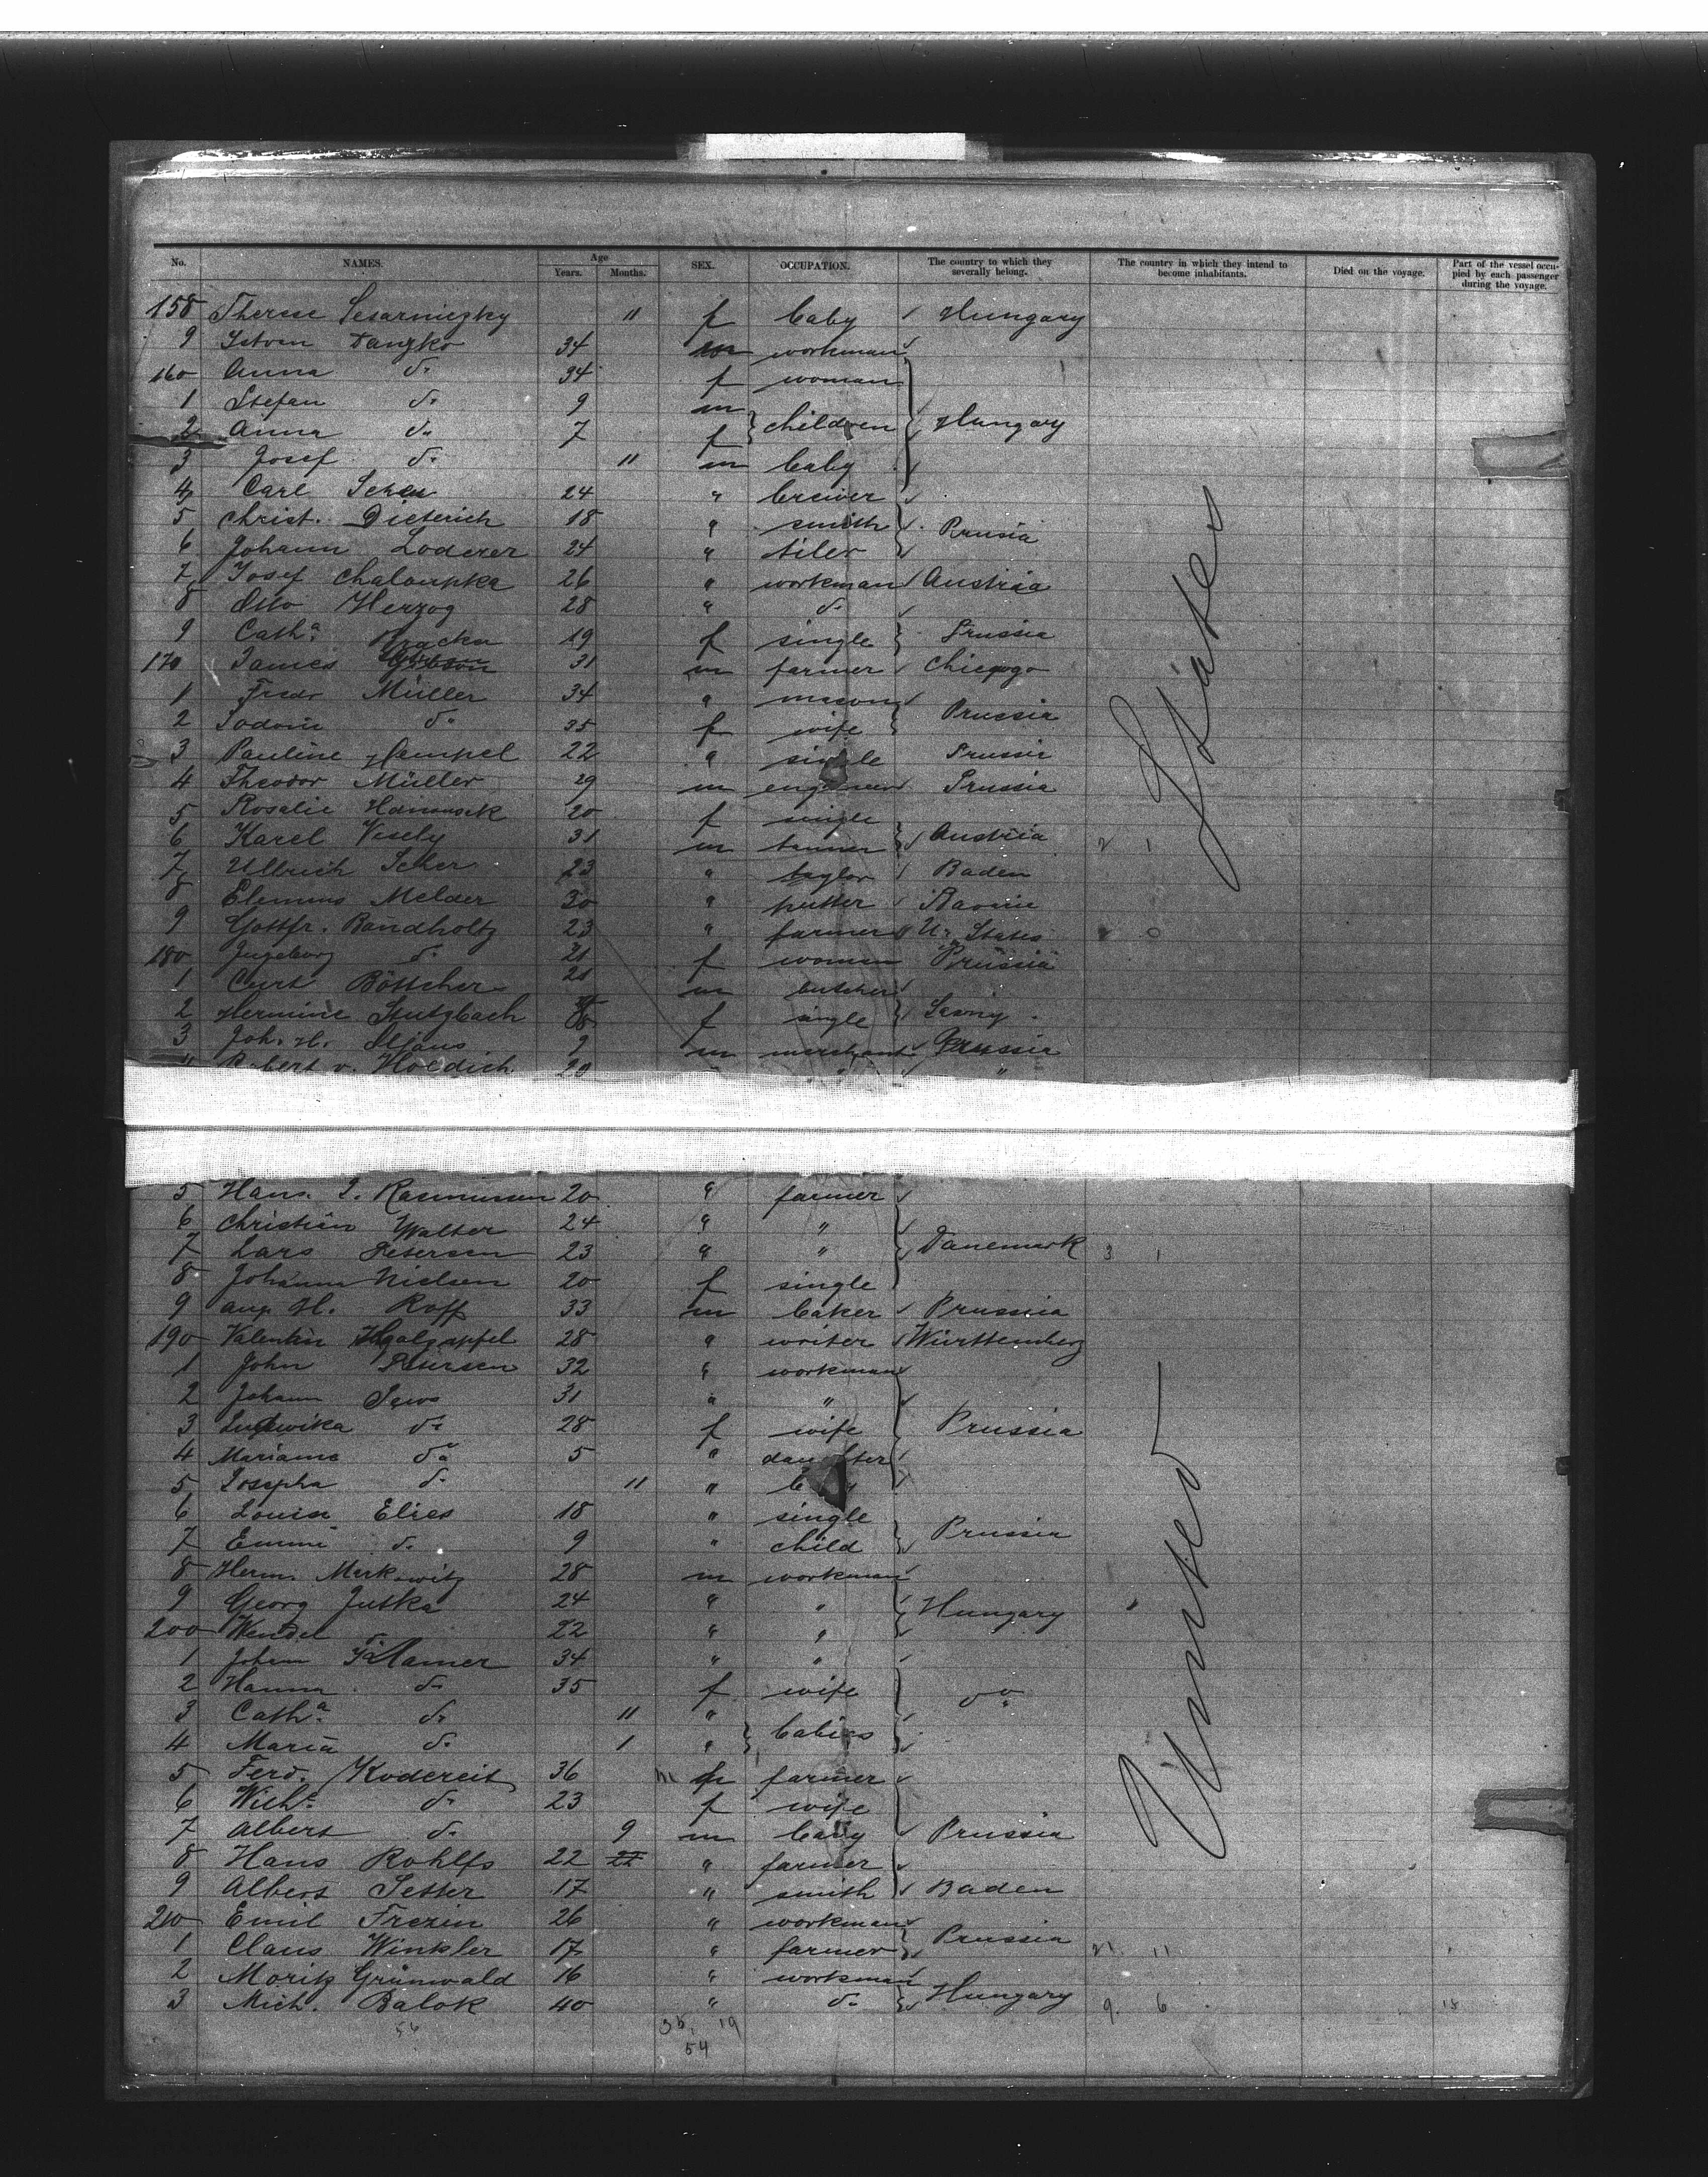 No. NAMES. Age Years. Months. SEX. OCCUPATION. The country to which they severally belong. The country in which they intend to become inhabitants. Died on the voyage. Part of the vessel occupied by each passenger during the voyage.
158 Therese 11 f baby Hungary
9 34 m workman
160 Anna do 34 f woman
1 Stefan do 9 m children Hungary
2 Anna do 7 f
3 Josef do 11 m baby
4 Carl 24 " brewer
5 Christ. Dieterich 18 " smith Prussia
6 Johann Loderer 24 " tiler
7 Josef Chaloupka 26 " workman Austria
8 Otto Herzog 28 " do
9 Cath.a 19 f single Prussia
170 James 31 m farmer Chicago
1 Fredr Müller 34 " mason Prussia
2 do 35 f wife
3 Pauline Hempel 22 " single Prussia
4 Theodor Müller 29 m engineer Prussia
5 Rosalie 20 f single
6 Karel Vesely 31 m tanner Austria 2 1
7 Ullrich 23 " taylor Baden
8 Melder 30 "
9 Gottfr. Bandholtz 23 " farmer U. States 0
180 Ingeborg do 21 f woman Prussia
1 Curt Böttcher 21 m butcher
2 Hermine Stutzbach f single
3 Joh. H. 9 m merchant Prussia
Robert v. Hoedich 20 " "
5 Hans. Rasmussen 20 " farmer
6 Christian Walter 24 " "
7 Lars Petersen 23 " " Danemark 3 1
8 Johanna Nielsen 20 f single
9 Aug. H. Roff 33 m baker Prussia
190 Valentin 28 " writer Württemberg
1 John Petersen 32 " workman
2 Johann 31 " "
3 Ludwika do 28 f wife Prussia
4 Marianna do 5 " daughter
5 Josepha do 11 "
6 Louise Elies 18 " single
7 Emmi do 9 " child Prussia
8 Herm. Markowitz 28 m workman
9 Georg Jutka 24 " " Hungary
200 Wendel do 22 " "
1 Johan 34 " "
2 Hanna do 35 f wife do
3 Cath.a do 11 " babies
4 Maria do 1 "
5 Ferd. Kodereit 36 m farmer
6 Wilh.e do 23 f wife
7 Albert do 9 m baby Prussia
8 Hans Rohlfs 22 22 " farmer
9 Albert Setter 17 " smith Baden
210 Emil Frezin 26 " workman
1 Claus Winkler 17 " farmer Prussia 21 11
2 Moritz Grünwald 16 " workman
3 Mich. Balok 40 " do Hungary 9 6 18
56 35, 19
54
United States